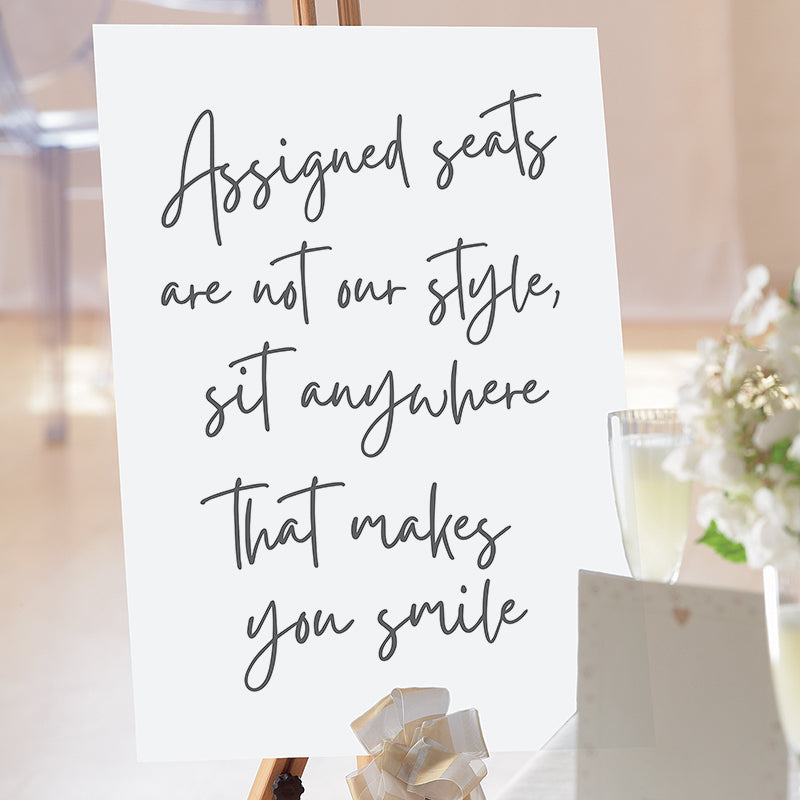 Assigned seats
are not our style,
sit anywhere
that makes
you smile